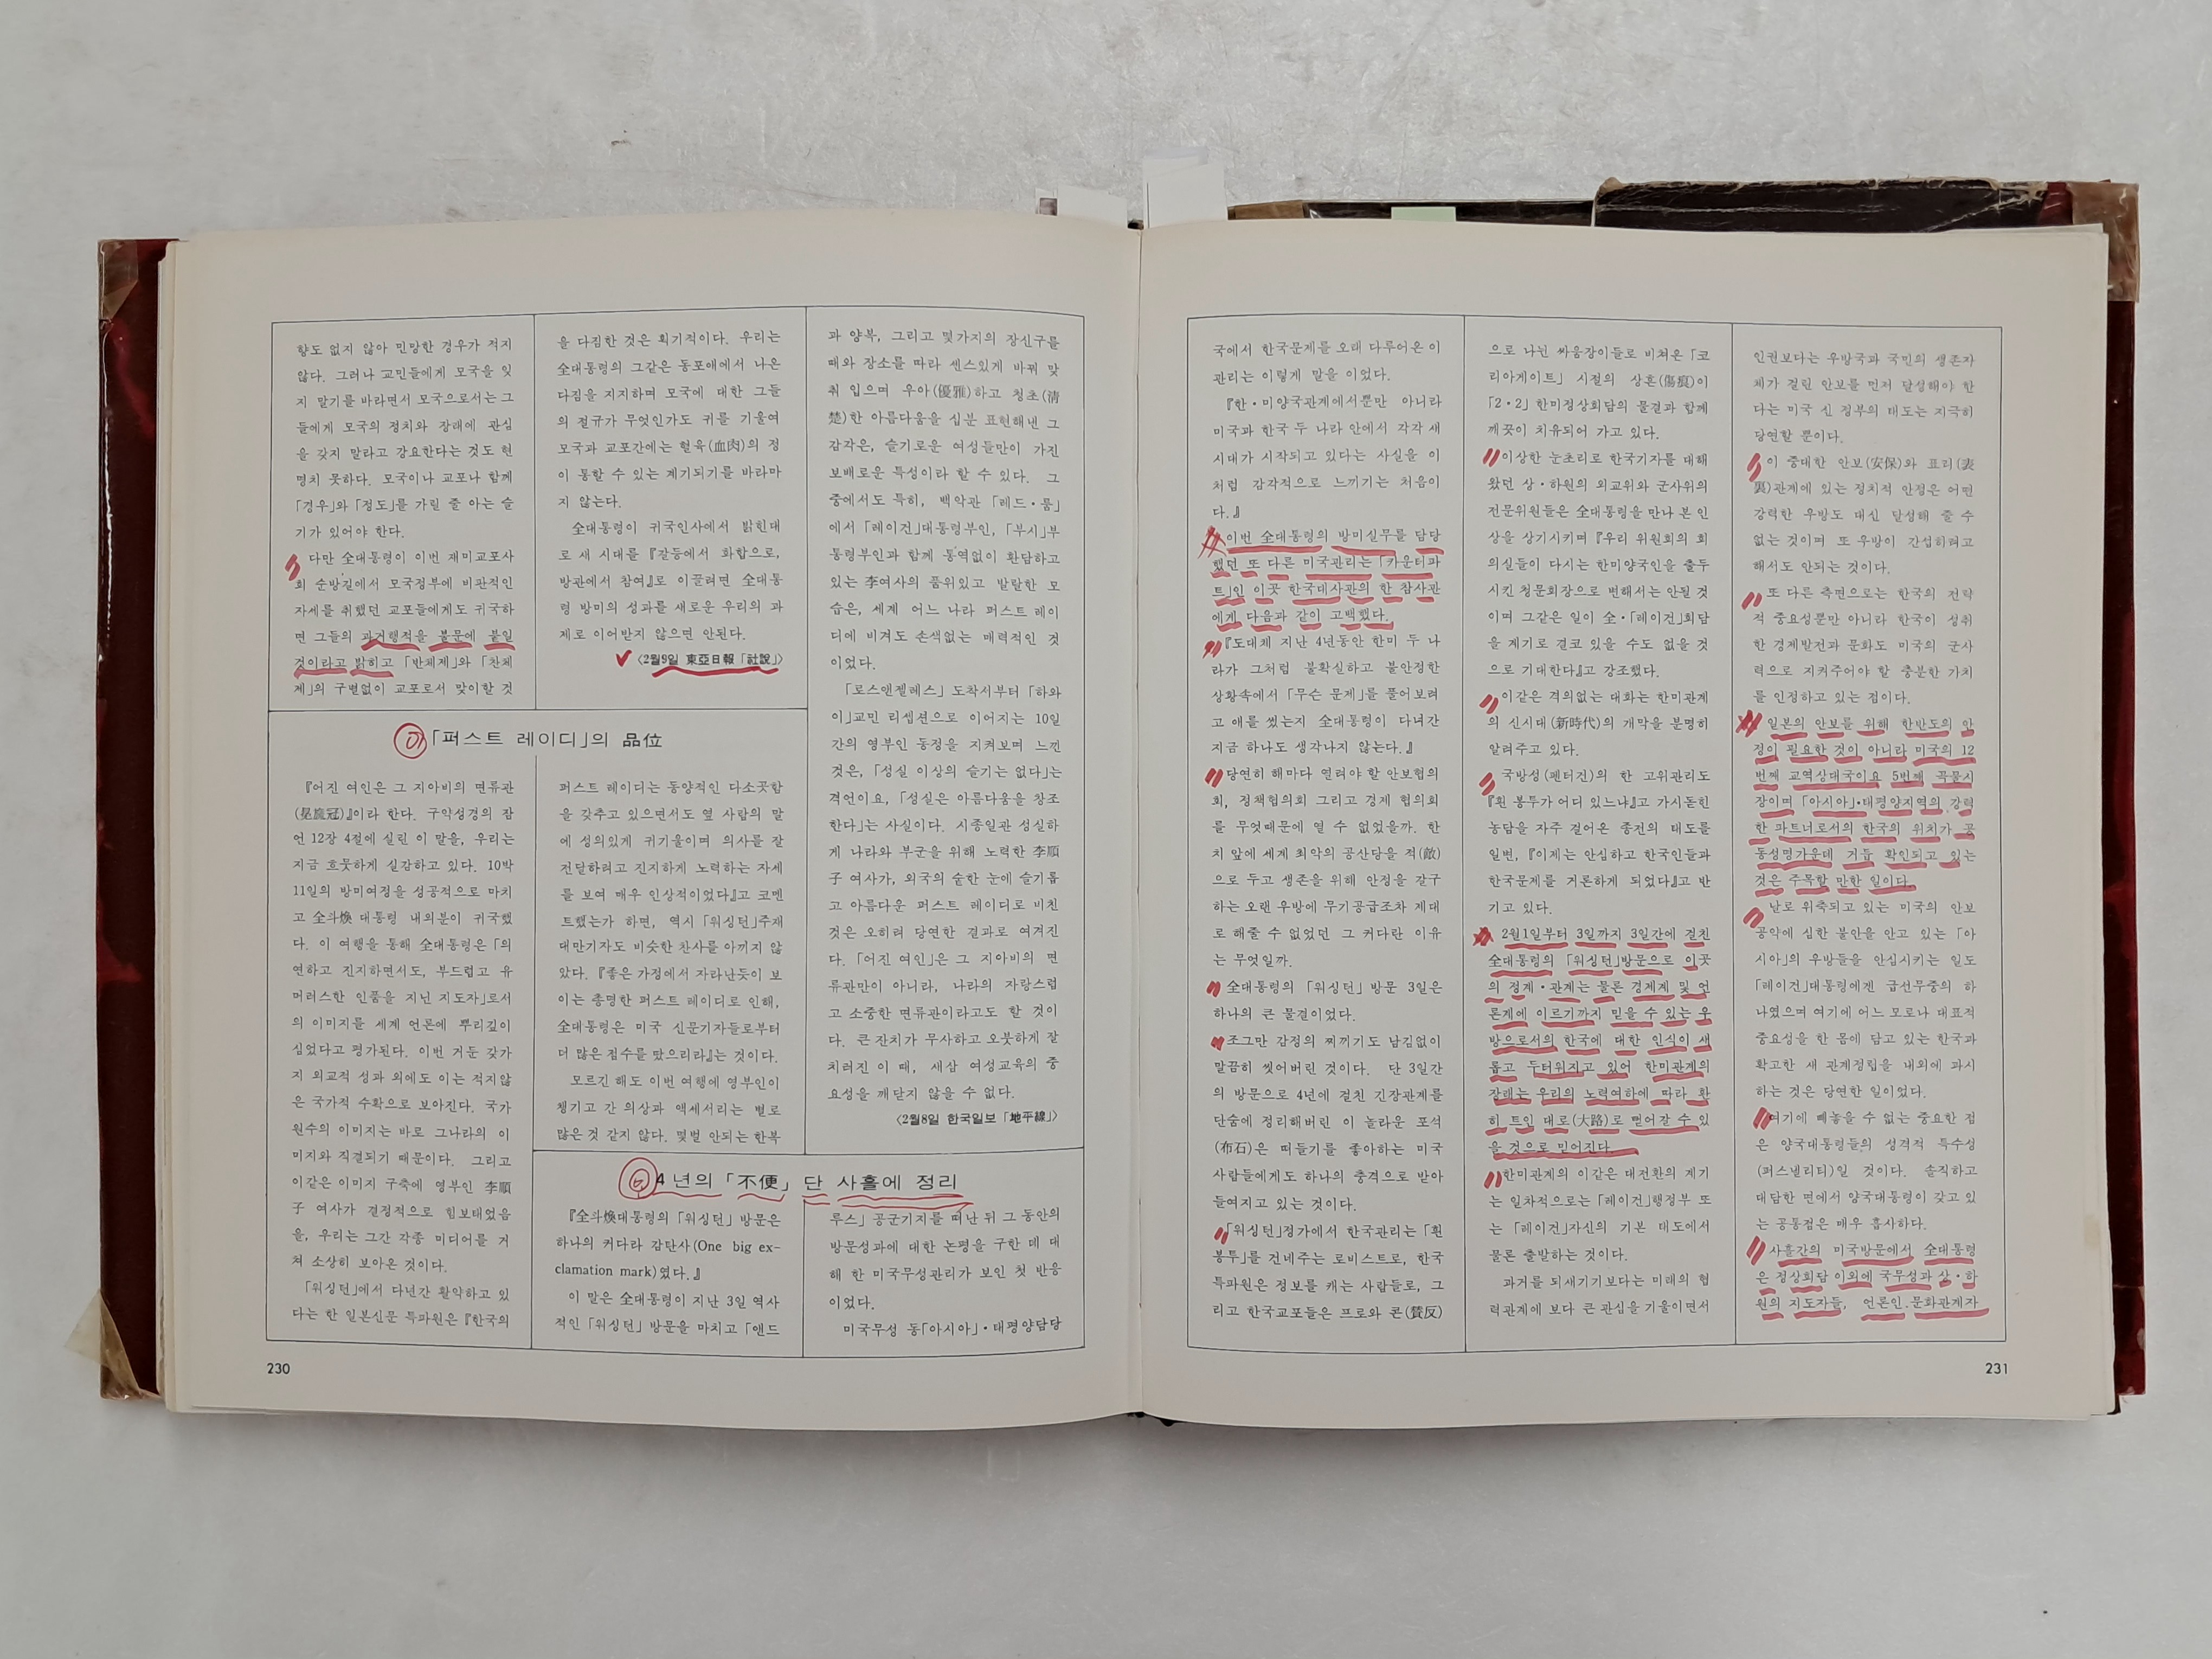 향도 없지 않아 민망한 경우가 적지
않다. 그러나 교민들에게 모국을 잊
지 말기를 바라면서 모국으로서는 그
들에게 모국의 정치와 장래에 관심
을 갖지 말라고 강요한다는 것도 현
명치 못하다. 모국이나 교포나 함께
「경우」와 「정도」를 가릴 줄 아는 슬
기가 있어야 한다.
다만 全대통령이 이번 재미교포사
회 순방길에서 모국정부에 비판적인
자세를 취했던 교포들에게도 귀국하
면 그들의 과거행적을 불문에 붙일
것이라고 밝히고 「반체제」와 「찬체
제」의 구별없이 교포로서 맞이할 것
을 다짐한 것은 획기적이다. 우리는
全대통령의 그같은 동포애에서 나온
다짐을 지지하며 모국에 대한 그들
의 절규가 무엇인가도 귀를 기울여
모국과 교포간에는 혈육(血肉)의 정
이 통할 수 있는 계기되기를 바라마
지 않는다.
全대통령이 귀국인사에서 밝힌대
로 새 시대를 『갈등에서 화합으로,
방관에서 참여』로 이끌려면 全대통
령 방미의 성과를 새로운 우리의 과
제로 이어받지 않으면 안된다.
〈2월9일 東亞日報 「社說」〉
「퍼스트 레이디」의 品位
『어진 여인은 그 지아비의 면류관
이라 한다. 구약성경의 잠
언 12장 4절에 실린 이 말을, 우리는
지금 흐뭇하게 실감하고 있다. 10박
11일의 방미여정을 성공적으로 마치
고 全斗煥 대통령 내외분이 귀국했
다. 이 여행을 통해 全대통령은 「의
연하고 진지하면서도, 부드럽고 유
머러스한 인품을 지닌 지도자」로서
의 이미지를 세계 언론에 뿌리깊이
심었다고 평가된다. 이번 거둔 갖가
지 외교적 성과 외에도 이는 적지않
은 국가적 수확으로 보아진다. 국가
원수의 이미지는 바로 그나라의 이
미지와 직결되기 때문이다. 그리고
이같은 이미지 구축에 영부인 李順
子 여사가 결정적으로 힘보태었음
을, 우리는 그간 각종 미디어를 거
쳐 소상히 보아온 것이다.
「워싱턴」에서 다년간 활약하고 있
다는 한 일본신문 특파원은 『한국의
퍼스트 레이디는 동양적인 다소곳함
을 갖추고 있으면서도 옆 사람의 말
에 성의있게 귀기울이며 의사를 잘
전달하려고 진지하게 노력하는 자세
를 보여 매우 인상적이었다』고 코멘
트했는가 하면, 역시 「워싱턴」주재
대만기자도 비슷한 찬사를 아끼지 않
았다. 『좋은 가정에서 자라난듯이 보
이는 총명한 퍼스트 레이디로 인해,
全대통령은 미국 신문기자들로부터
더 많은 점수를 땄으리라』는 것이다.
모르긴 해도 이번 여행에 영부인이
챙기고 간 의상과 액세서리는 별로
많은 것 같지 않다. 몇벌 안되는 한복
과 양복, 그리고 몇가지의 장신구를
때와 장소를 따라 센스있게 바꿔 맞
춰 입으며 우아(優雅)하고 청초(淸
楚)한 아름다움을 십분 표현해낸 그
감각은, 슬기로운 여성들만이 가진
보배로운 특성이라 할 수 있다. 그
중에서도 특히, 백악관 「레드・룸」
에서 「레이건」대통령부인, 「부시」부
통령부인과 함께 통역없이 환담하고
있는 李여사의 품위있고 발랄한 모
습은, 세계 어느 나라 퍼스트 레이
디에 비겨도 손색없는 매력적인 것
이었다.
「로스앤젤레스」 도착서부터 「하와
이」교민 리셉션으로 이어지는 10일
간의 영부인 동정을 지켜보며 느낀
것은, 「성실 이상의 슬기는 없다」는
격언이요, 「성실은 아름다움을 창조
한다」는 사실이다. 시종일관 성실하
게 나라와 부군을 위해 노력한 李順
子 여사가, 외국의 숱한 눈에 슬기롭
고 아름다운 퍼스트 레이디로 비친
것은 오히려 당연한 결과로 여겨진
다. 「어진 여인」은 그 지아비의 면
류관만이 아니라, 나라의 자랑스럽
고 소중한 면류관이라고도 할 것이
다. 큰 잔치가 무사하고 오붓하게 잘
치러진 이 때, 세삼 여성교육의 중
요성을 깨닫지 않을 수 없다.
〈2월8일 한국일보 「地平線」〉
4년의 「不便」 단 사흘에 정리
『全斗煥대통령의 「워싱턴」 방문은
하나의 커다라 감탄사(One big ex-
clamation mark)였다.』
이 말은 全대통령이 지난 3일 역사
적인 「워싱턴」 방문을 마치고 「앤드
루스」 공군기지를 떠난 뒤 그 동안의
방문성과에 대한 논평을 구한 데 대
해 한 미국무성관리가 보인 첫 반응
이었다.
미국무성 동「아시아」・태평양담당
230
국에서 한국문제를 오래 다루어온 이
관리는 이렇게 말을 이었다.
『한・미양국관계에서뿐만 아니라
미국과 한국 두 나라 안에서 각각 새
시대가 시작되고 있다는 사실을 이
처럼 감각적으로 느끼기는 처음이
다.』
이번 全대통령의 방미실무를 담당
했던 또 다른 미국관리는 「카운터파
트」인 이곳 한국대사관의 한 참사관
에게 다음과 같이 고백했다.
『도대체 지난 4년동안 한미 두 나
라가 그처럼 불확실하고 불안정한
상황속에서 「무슨 문제」를 풀어보려
고 애를 썼는지 全대통령이 다녀간
지금 하나도 생각나지 않는다.』
당연히 해마다 열려야 할 안보협의
회, 정책협의회 그리고 경제 협의회
를 무엇때문에 열 수 없었을까. 한
치 앞에 세계 최악의 공산당을 적(敵)
으로 두고 생존을 위해 안정을 갈구
하는 오랜 우방에 무기공급조차 제대
로 해줄 수 없었던 그 커다란 이유
는 무엇일까.
全대통령의 「워싱턴」 방문 3일은
하나의 큰 물결이었다.
조그만 감정의 찌끼기도 남김없이
말끔히 씻어버린 것이다. 단 3일간
의 방문으로 4년에 걸친 긴장관계를
단숨에 정리해버린 이 놀라운 포석
(布石)은 떠들기를 좋아하는 미국
사람들에게도 하나의 충격으로 받아
들여지고 있는 것이다.
「워싱턴」정가에서 한국관리는 「흰
봉투」를 건네주는 로비스트로, 한국
특파원은 정보를 캐는 사람들로, 그
리고 한국교포들은 프로와 콘(贊反)
으로 나뉜 싸움장이들로 비쳐온 「코
리아게이트」 시절의 상흔(傷痕)이
「2・2」 한미정상회담의 물결과 함께
깨끗이 치유되어 가고 있다.
이상한 눈초리로 한국기자를 대해
왔던 상・하원의 외교위와 군사위의
전문위원들은 全대통령을 만나 본 인
상을 상기시키며 『우리 위원회의 회
의실들이 다시는 한미양국인을 출두
시킨 청문회장으로 변해서는 안될 것
이며 그같은 일이 全・「레이건」회담
을 계기로 결코 있을 수도 없을 것
으로 기대한다』고 강조했다.
이같은 격의없는 대화는 한미관계
의 신시대(新時代)의 개막을 분명히
알려주고 있다.
국방성(펜터건)의 한 고위관리도
『흰 봉투가 어디 있느냐』고 가시돋힌
농담을 자주 걸어온 종전의 태도를
일변, 『이제는 안심하고 한국인들과
한국문제를 거론하게 되었다』고 반
기고 있다.
2월1일부터 3일까지 3일간에 걸친
全대통령의 「워싱턴」방문으로 이곳
의 정계・관계는 물론 경제계 및 언
론계에 이르기까지 믿을 수 있는 우
방으로서의 한국에 대한 인식이 새
롭고 두터워지고 있어 한미관계의
장래는 우리의 노력여하에 따라 환
히 트인 대로(大路)로 뻗어갈 수 있
을 것으로 믿어진다.
한미관계의 이같은 대전환의 계기
는 일차적으로는 「레이건」행정부 또
는 「레이건」자신의 기본 태도에서
물론 출발하는 것이다.
과거를 되새기기보다는 미래의 협
력관계에 보다 큰 관심을 기울이면서
인권보다는 우방국과 국민의 생존자
체가 걸린 안보를 먼저 달성해야 한
다는 미국 신 정부의 태도는 지극히
당연할 뿐이다.
이 중대한 안보(安保)와 표리(表
裏)관계에 있는 정치적 안정은 어떤
강력한 우방도 대신 달성해 줄 수
없는 것이며 또 우방이 간섭하려고
해서도 안되는 것이다.
또 다른 측면으로는 한국의 전략
적 중요성뿐만 아니라 한국이 성취
한 경제발전과 문화도 미국의 군사
력으로 지켜주어야 할 충분한 가치
를 인정하고 있는 점이다.
일본의 안보를 위해 한반도의 안
정이 필요한 것이 아니라 미국의 12
번째 교역상대국이요 5번째 곡물시
장이며 「아시아」・태평양지역의 강력
한 파트너로서의 한국의 위치가 공
동성명가운데 거듭 확인되고 있는
것은 주목할 만한 일이다.
날로 위축되고 있는 미국의 안보
공약에 심한 불안을 안고 있는 「아
시아」의 우방들을 안심시키는 일도
「레이건」대통령에겐 급선무중의 하
나였으며 여기에 어느 모로나 대표적
중요성을 한 몸에 담고 있는 한국과
확고한 새 관계정립을 내외에 과시
하는 것은 당연한 일이었다.
여기에 빼놓을 수 없는 중요한 점
은 양국대통령들의 성격적 특수성
(퍼스낼리티)일 것이다. 솔직하고
대담한 면에서 양국대통령이 갖고 있
는 공통점은 매우 흡사하다.
사흘간의 미국방문에서 全대통령
은 정상회담 이외에 국무성과 상・하
원의 지도자들, 언론인・문화관계자
231